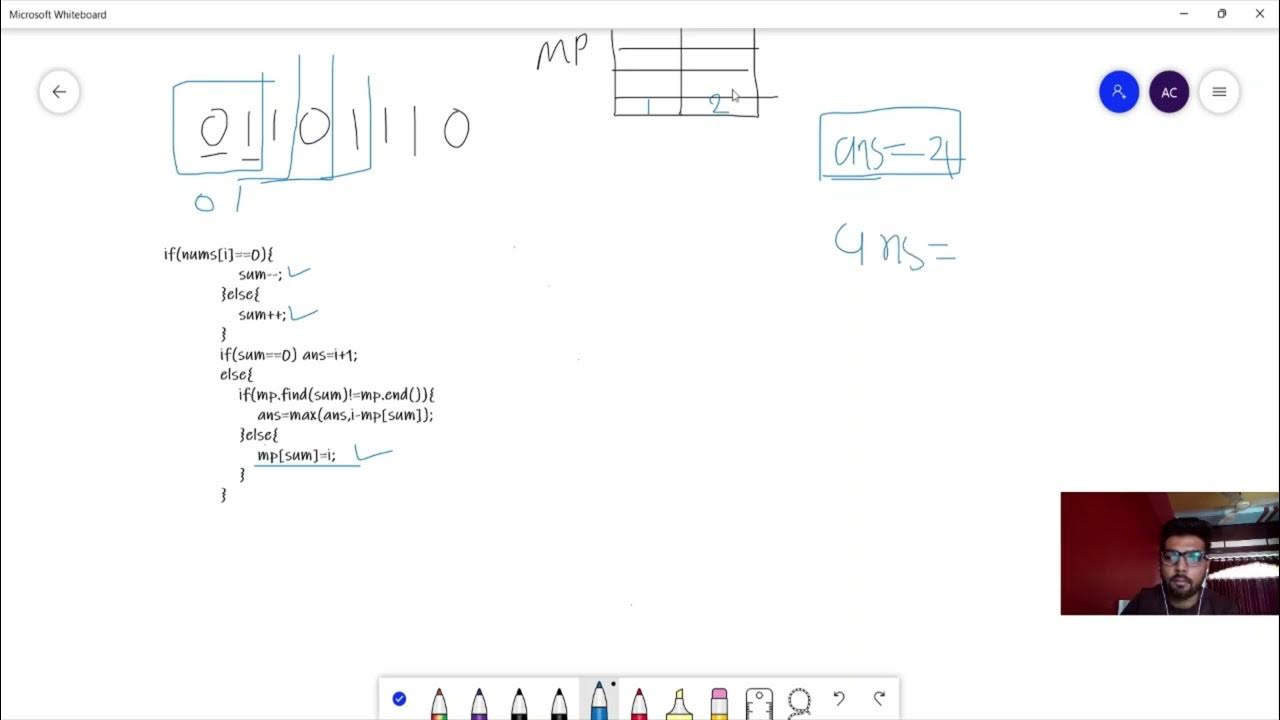 Microsoft Whiteboard
MP
AC
0 1 1 0 1 1 1 0
1 2
ans=
0 1
ans=
if(nums[i]==0){
sum--;
}else{
sum++;
}
if(sum==0) ans=i+1;
else{
if(mp.find(sum)!=mp.end()){
ans=max(ans,i-mp[sum]);
}else{
mp[sum]=i;
}
}